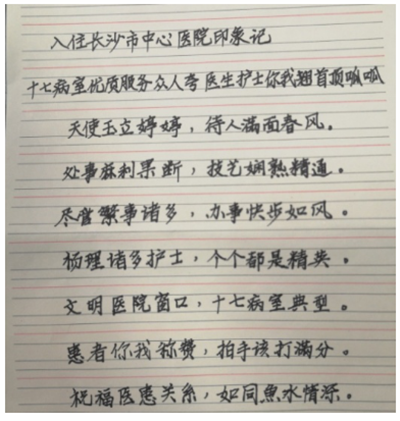 入住长沙市中心医院印象记
十七病室优质服务众人夸医生护士你我翘首顶呱呱
天使玉立婷婷，待人满面春风。
处事麻利果断，技艺娴熟精通。
尽管繁事诸多，办事快步如风。
杨理诸多护士，个个都是精英。
文明医院窗口，十七病室典型。
患者你我称赞，拍手该打满分。
祝福医患关系，如同魚水情深。